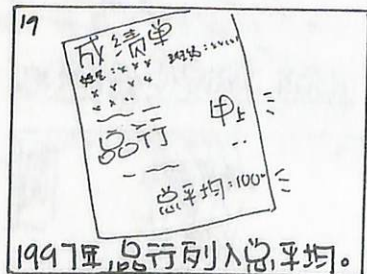 19
成绩单
品行
中上
总平均:100
1997年,品行列入总平均。